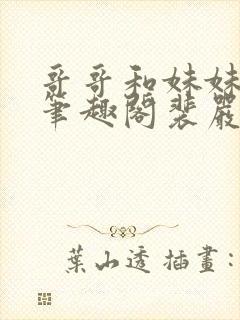 哥哥和妹妹
筆趣閣裴嚴
葉山透 插畫: